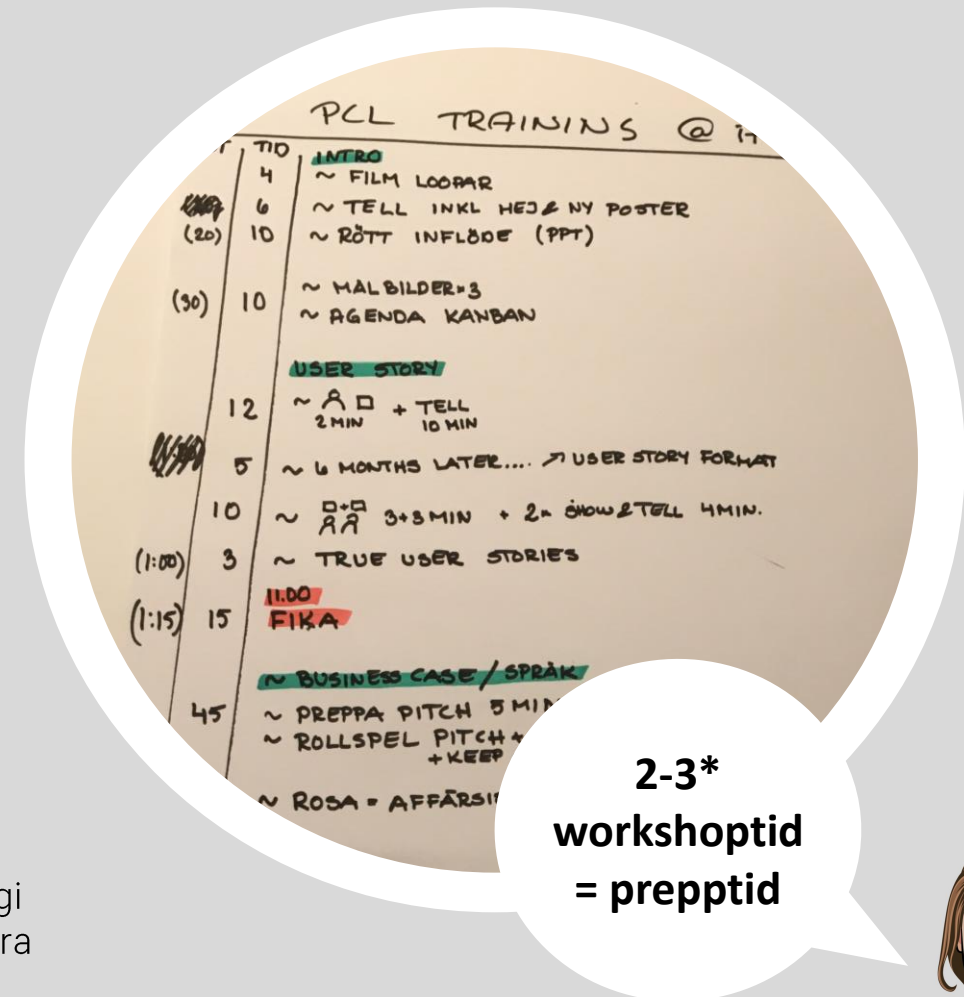 PCL TRAINING @
TID INTRO
4 ~ FILM LOOPAR
6 ~ TELL INKL HEJ & NY POSTER
(20) 10 ~ RÖTT INFLÖDE (PPT)
(30) 10 ~ MÅLBILDER×3
~ AGENDA KANBAN
USER STORY
12 ~ + TELL
2 MIN 10 MIN
5 ~ 6 MONTHS LATER.... ↗ USER STORY FORMAT
10 ~ 3+3 MIN + 2× SHOW & TELL 4 MIN.
(1:00) 3 ~ TRUE USER STORIES
11.00
(1:15) 15 FIKA
~ BUSINESS CASE / SPRÅK
45 ~ PREPPA PITCH 5 MIN
~ ROLLSPEL PITCH +
+ KEEP
~ ROSA = AFFÄRSI
2-3*
workshoptid
= prepptid
gi
ra